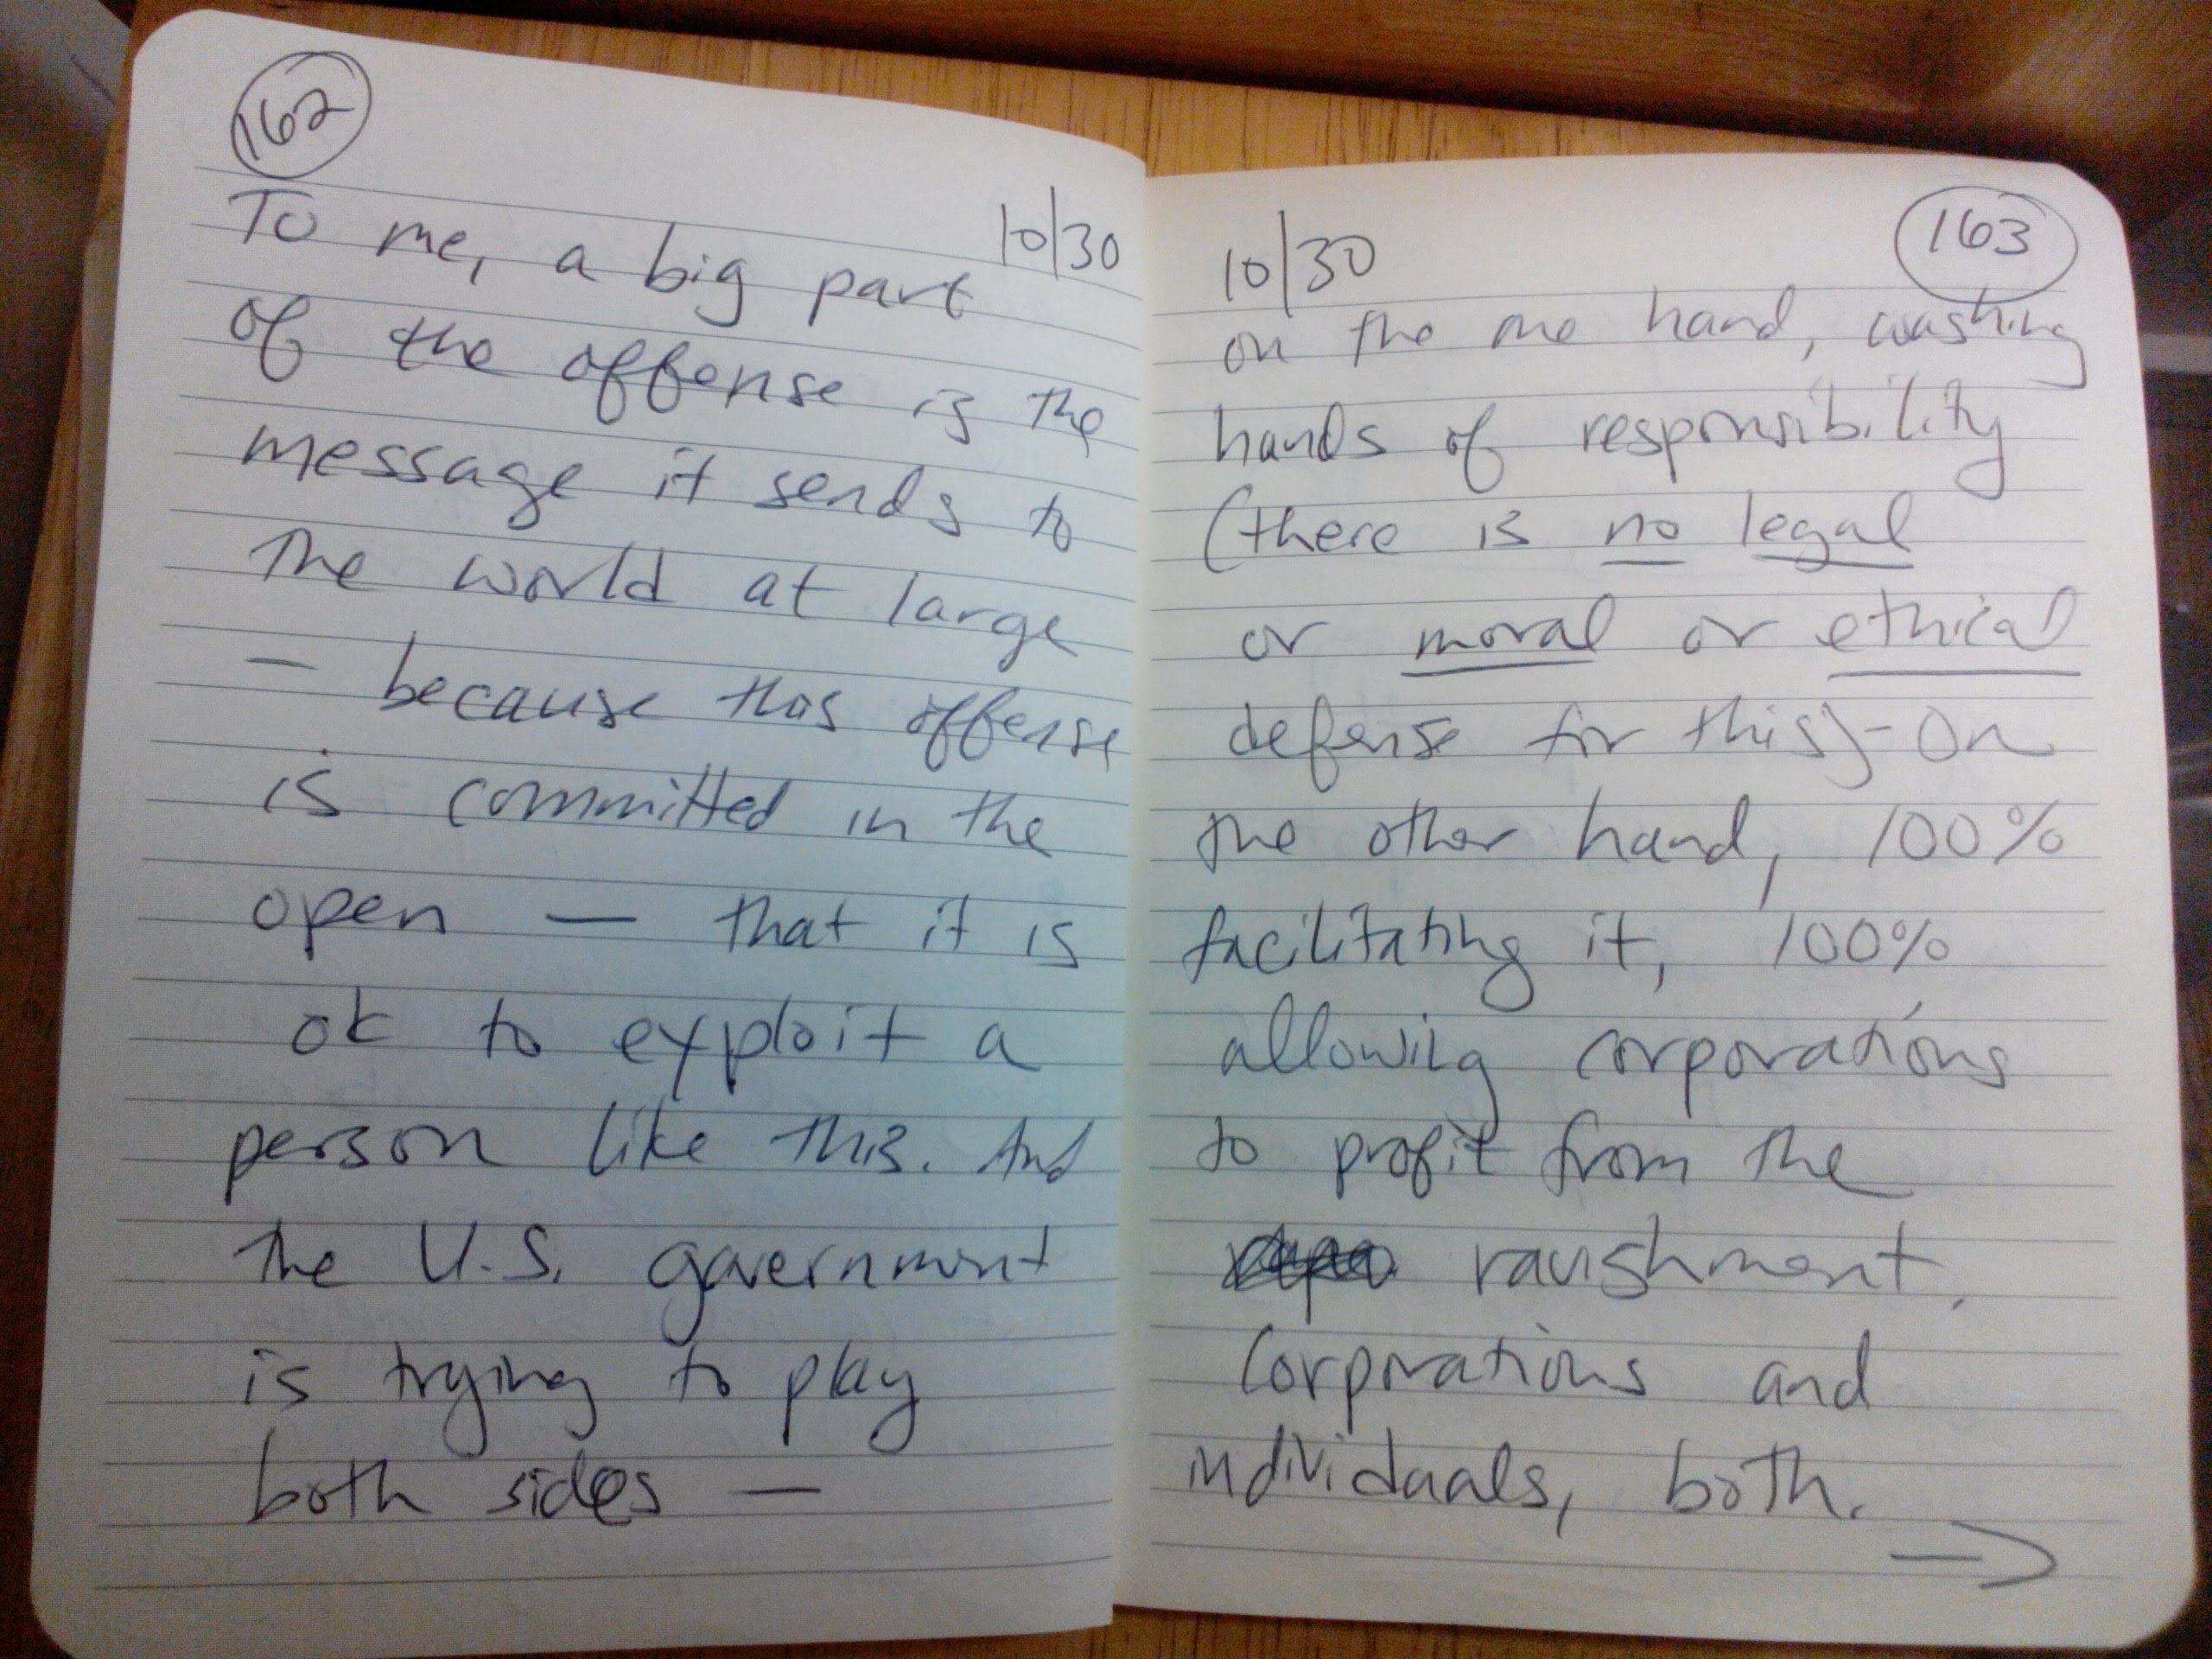 162
10/30
To me, a big part
of the offense is the
message it sends to
the world at large
— because this offense
is committed in the
open — that it is
ok to exploit a
person like this. And
the U.S. government
is trying to play
both sides —
163
10/30
on the one hand, washing
hands of responsibility
(there is no legal
or moral or ethical
defense for this) - On
the other hand, 100%
facilitating it, 100%
allowing corporations
to profit from the
ravishment.
Corporations and
individuals, both.
→